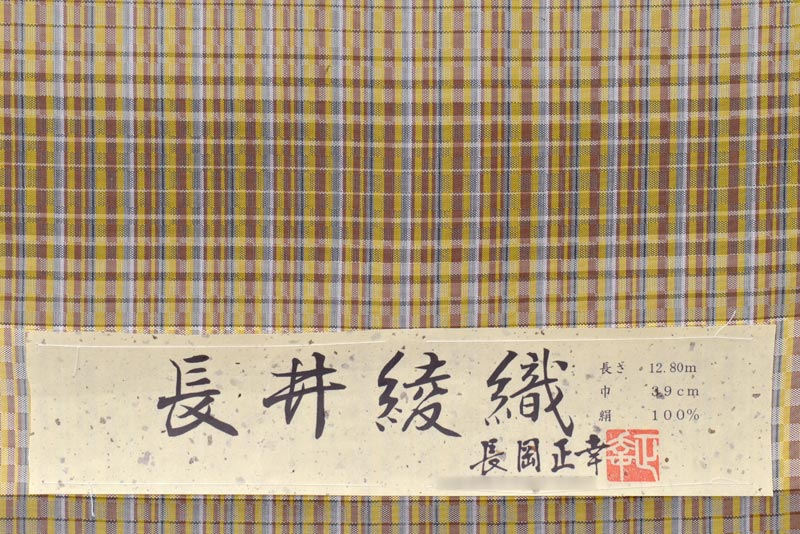 長井綾織
長さ 12.80m
巾 39cm
絹 100%
長岡正幸
正幸